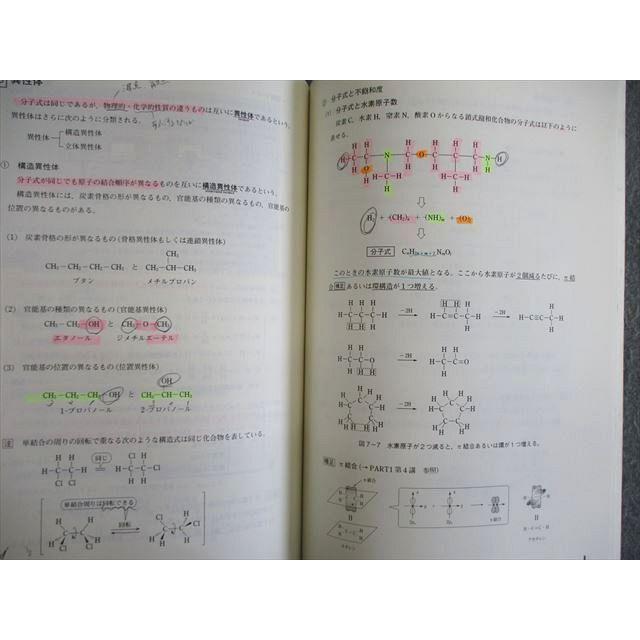 異性体
分子式は同じであるが，物理的・化学的性質の違うものは互いに異性体であるという．
異性体はさらに次のように分類される．
異性体
構造異性体
立体異性体
① 構造異性体
分子式が同じでも原子の結合順序が異なるものを互いに構造異性体であるという．
構造異性体には，炭素骨格の異なるもの，官能基の種類の異なるもの，官能基の
位置の異なるものがある．
(1) 炭素骨格の形が異なるもの（骨格異性体もしくは連鎖異性体）
CH₃
CH₃－CH₂－CH₂－CH₃ と CH₃－CH－CH₃
ブタン メチルプロパン
(2) 官能基の種類の異なるもの（官能基異性体）
CH₃－CH₂－OH と CH₃－O－CH₃
エタノール ジメチルエーテル
(3) 官能基の位置の異なるもの（位置異性体）
OH
CH₃－CH₂－CH₂－OH と CH₃－CH－CH₃
1-プロパノール 2-プロパノール
注 単結合の周りの回転で重なる次のような構造式は同じ化合物を表している．
同じ
単結合周りは回転できる
回転
② 分子式と不飽和度
(1) 分子式と水素原子数
炭素C，水素H，窒素N，酸素Oからなる鎖式飽和化合物の分子式は以下のように
表せる．
H₂ + (CH₂)ₙ (NH)ₘ (O)ₗ
分子式 CₙH₂ₙ₊ₘ₊₂NₘOₗ
このときの水素原子数が最大値となる．ここから水素原子が2個減るたびに，π結
合補足あるいは環構造が1つ増える．
－2H
－2H
H－C≡C－H
－2H
－2H
図7－7 水素原子が2つ減ると，π結合あるいは環が1つ増える．
補足 π結合（→PART1 第4講 参照）
π結合
エチレン
π結合
アセチレン